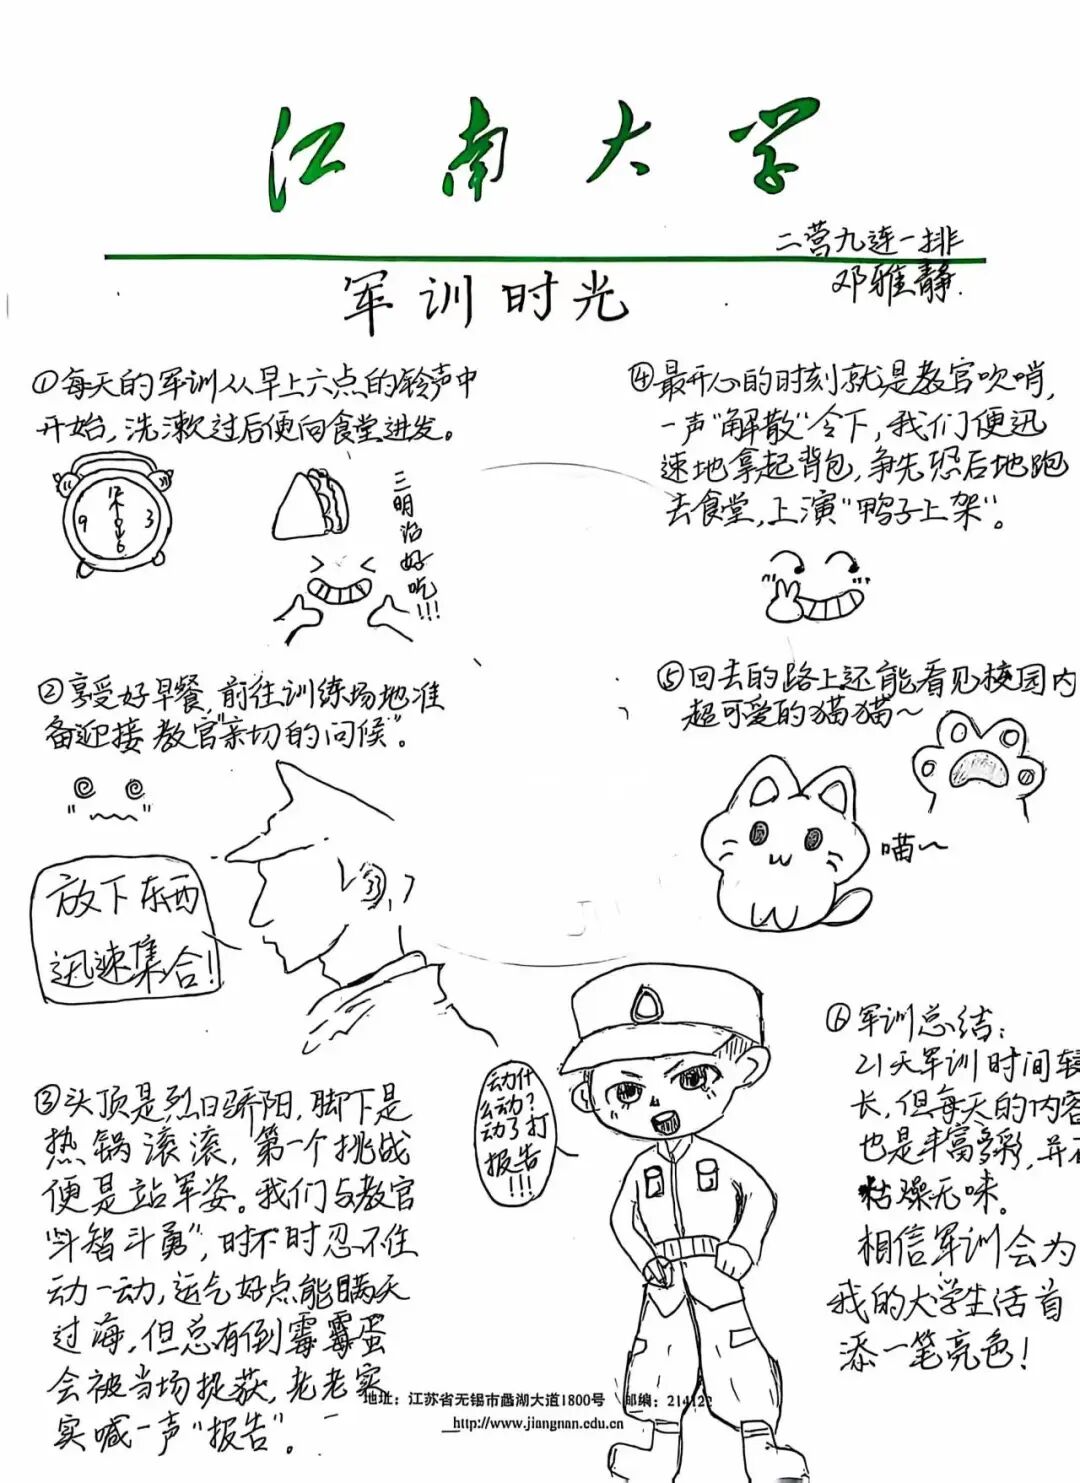 江南大学
二营九连一排
邓雅静.
军训时光
①每天的军训从早上六点的铃声中
开始,洗漱过后便向食堂进发。
12
9
3
6
三明治好吃!!!
②享受好早餐,前往训练场地准
备迎接教官"亲切的问候"。
放下东西
迅速集合!
③头顶是烈日骄阳,脚下是
热锅滚滚,第一个挑战
便是站军姿。我们与教官
"斗智斗勇",时不时忍不住
动一动,运气好点能瞒天
过海,但总有倒霉霉蛋
会被当场捉获,老老实
实喊一声"报告"。
④最开心的时刻就是教官吹哨,
一声"解散"令下,我们便迅
速地拿起背包,争先恐后地跑
去食堂,上演"鸭子上架"。
⑤回去的路上还能看见校园内
超可爱的猫猫~
喵~
动什
么动?
动了打
报告
!!!
⑥军训总结:
21天军训时间较
长,但每天的内容
也是丰富多彩,并不
枯燥无味。
相信军训会为
我的大学生活首
添一笔亮色!
地址:江苏省无锡市蠡湖大道1800号 邮编:214122
http://www.jiangnan.edu.cn